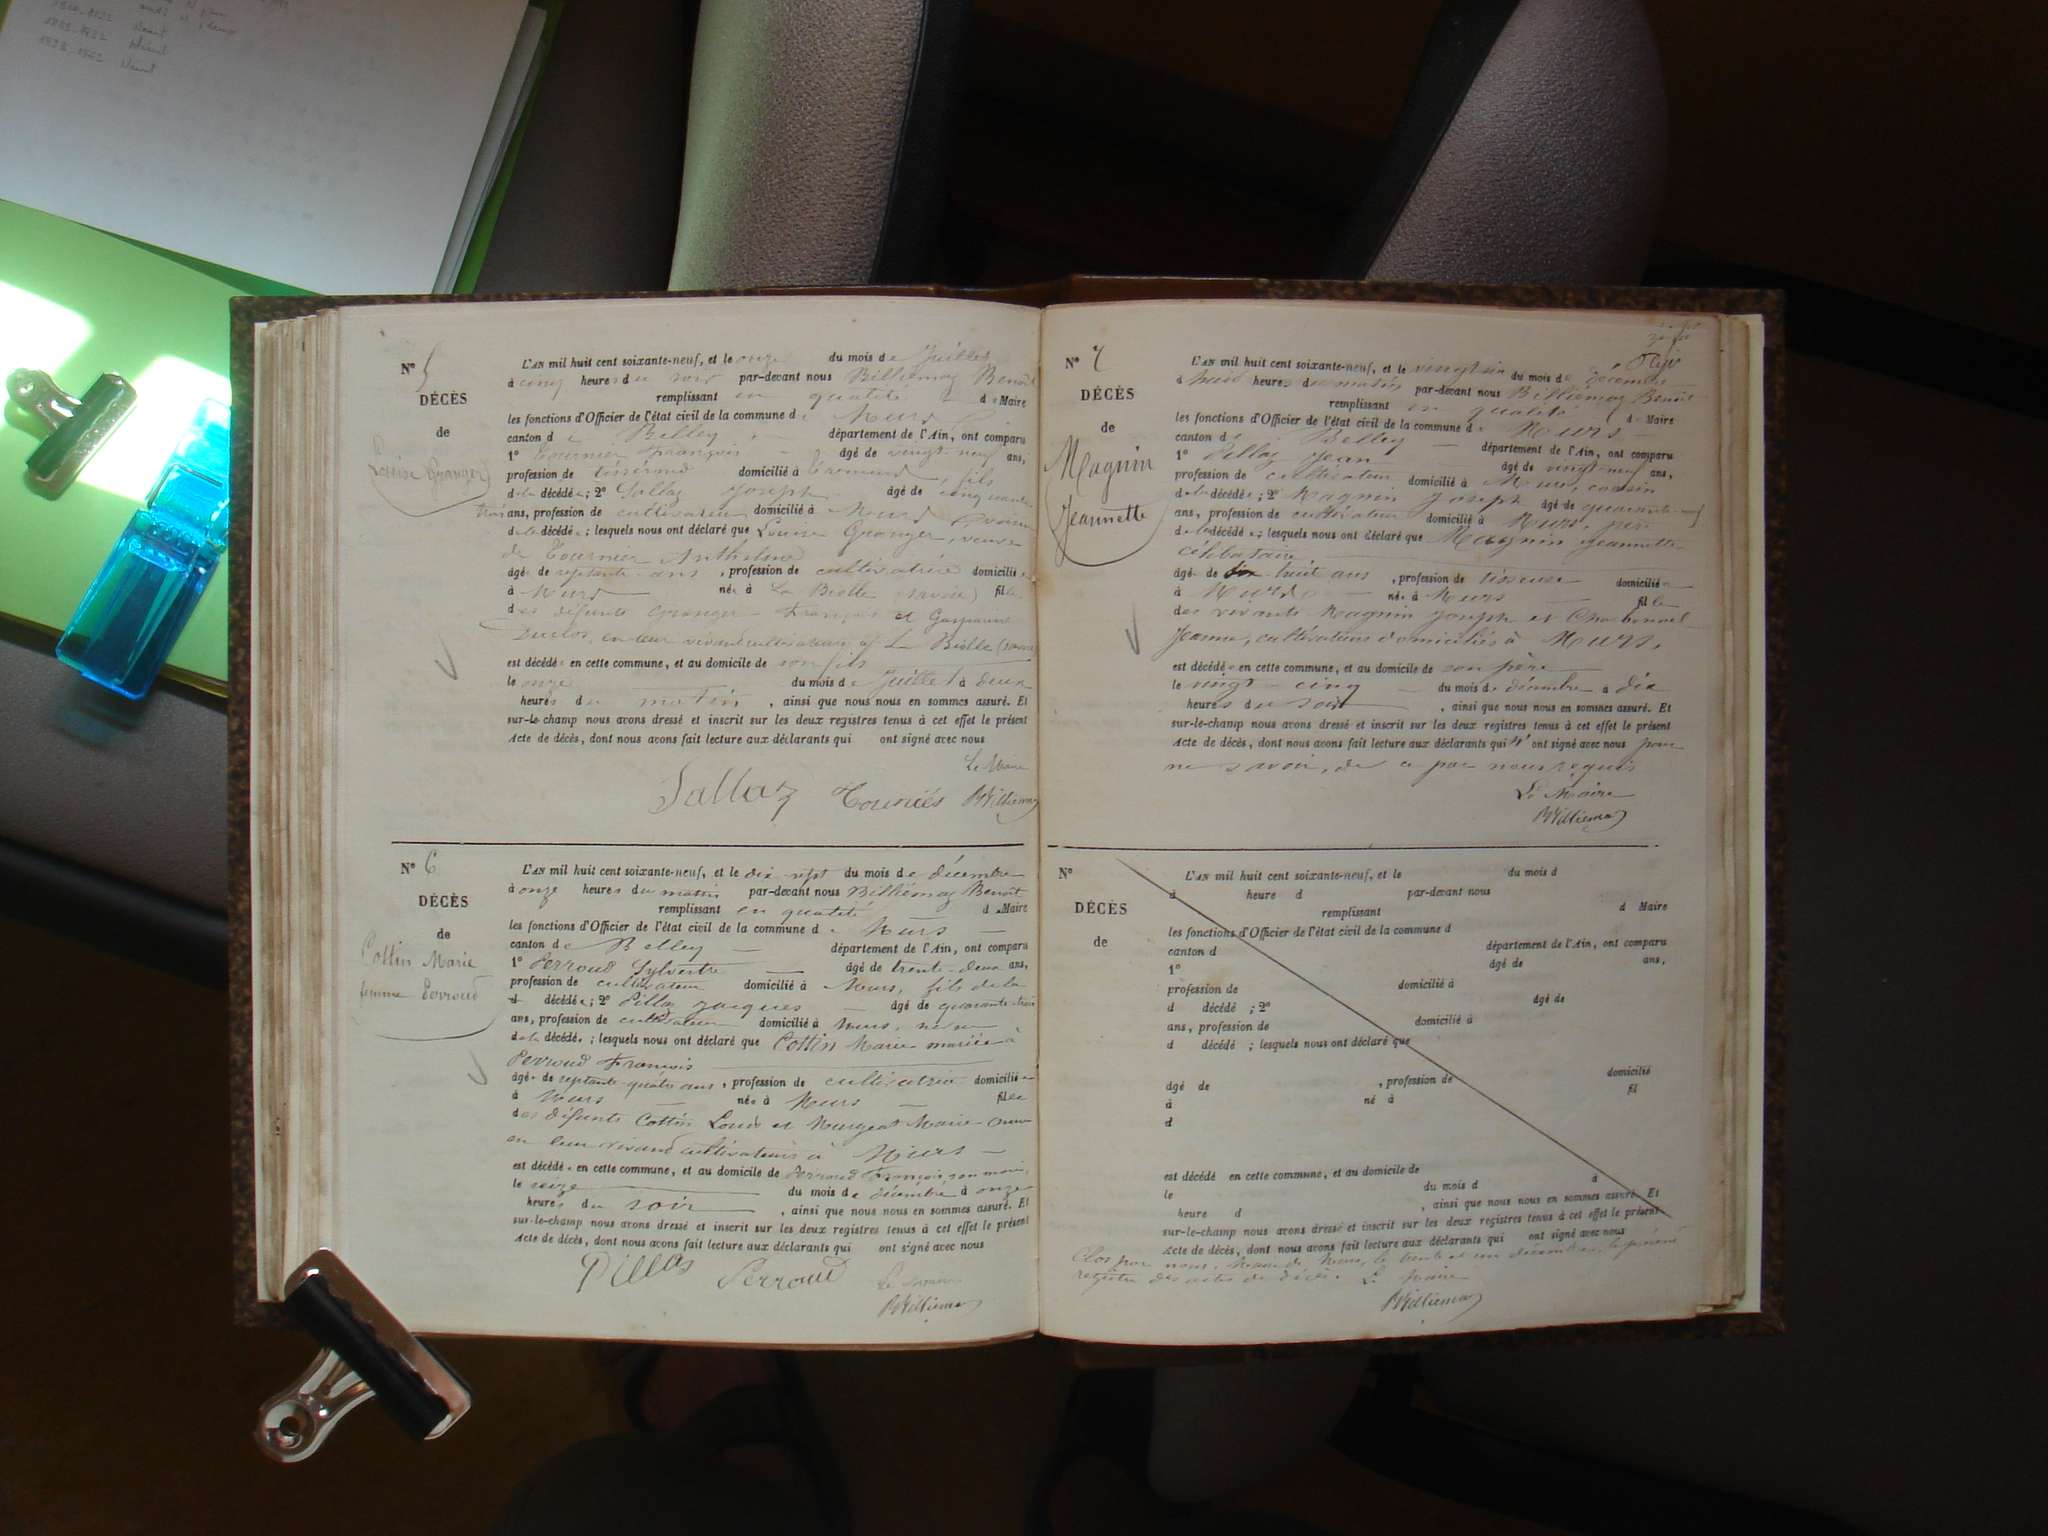 1832
1832 Néant
1842 Néant
N° 5
DÉCÈS
de
Louise Granger
L'AN mil huit cent soixante-neuf, et le onze du mois de Juillet
à cinq heures du soir par-devant nous Billiemaz Benoît
remplissant en qualité de Maire
les fonctions d'Officier de l'état civil de la commune de Murs
canton de Belley département de l'Ain, ont comparu
1° Tournier François âgé de vingt-neuf ans,
profession de tisserand domicilié à fils
de la décédée; 2° Sallaz Joseph âgé de cinquante
trois ans, profession de cultivateur domicilié à Murs voisin
de la décédée; lesquels nous ont déclaré que Louise Granger, veuve
de Tournier Anthelme
âgée de septante ans, profession de cultivatrice domiciliée
à Murs née à La Biolle (Savoie) fille
des défunts Granger François et Gasparine
Duclos, en leur vivant cultivateurs à La Biolle (Savoie)
est décédée en cette commune, et au domicile de son fils
le onze du mois de Juillet à deux
heures du matin, ainsi que nous nous en sommes assuré. Et
sur-le-champ nous avons dressé et inscrit sur les deux registres tenus à cet effet le présent
Acte de décès, dont nous avons fait lecture aux déclarants qui ont signé avec nous
Le Maire
Sallaz Tourniés BBilliemaz
N° 6
DÉCÈS
de
Cottin Marie
femme Perroud
L'AN mil huit cent soixante-neuf, et le dix-sept du mois de décembre
à onze heures du matin par-devant nous Billiemaz Benoît
remplissant en qualité de Maire
les fonctions d'Officier de l'état civil de la commune de Murs
canton de Belley département de l'Ain, ont comparu
1° Perroud Sylvestre âgé de trente-deux ans,
profession de cultivateur domicilié à Murs, fils de la
d décédée; 2° Pillaz Jacques âgé de quarante-trois
ans, profession de cultivateur domicilié à Murs, neveu
de la décédée; lesquels nous ont déclaré que Cottin Marie mariée à
Perroud François
âgée de septante-quatre ans, profession de cultivatrice domiciliée
à Murs née à Murs fille
des défunts Cottin Louis et Murgeat Marie
en leur vivant cultivateurs à Murs
est décédée en cette commune, et au domicile de Perroud François son mari,
le seize du mois de décembre à onze
heures du soir, ainsi que nous nous en sommes assuré. Et
sur-le-champ nous avons dressé et inscrit sur les deux registres tenus à cet effet le présent
Acte de décès, dont nous avons fait lecture aux déclarants qui ont signé avec nous
Pillas Perroud Le Maire
BBilliemaz
N° 7
DÉCÈS
de
Magnin
Jeannette
L'AN mil huit cent soixante-neuf, et le vingt six du mois de décembre
à huit heures du matin par-devant nous Billiemaz Benoît
remplissant en qualité de Maire
les fonctions d'Officier de l'état civil de la commune de Murs
canton de Belley département de l'Ain, ont comparu
1° Pillaz Jean âgé de vingt-neuf ans,
profession de cultivateur domicilié à Murs, cousin
de la décédée; 2° Magnin Joseph âgé de quarante-
ans, profession de cultivateur domicilié à Murs, père
de la décédée; lesquels nous ont déclaré que Magnin Jeannette
célibataire
âgée de dix-huit ans, profession de tisseuse domiciliée
à Murs née à Murs fille
des vivants Magnin Joseph et Charbonnel
Jeanne, cultivateurs domiciliés à Murs.
est décédée en cette commune, et au domicile de son père
le vingt-cinq du mois de décembre à dix
heures du soir, ainsi que nous nous en sommes assuré. Et
sur-le-champ nous avons dressé et inscrit sur les deux registres tenus à cet effet le présent
Acte de décès, dont nous avons fait lecture aux déclarants qui n'ont signé avec nous pour
ne savoir, de ce par nous requis
Le Maire
BBilliemaz
N°
DÉCÈS
de
L'AN mil huit cent soixante-neuf, et le du mois d
à heure d par-devant nous
remplissant d Maire
les fonctions d'Officier de l'état civil de la commune d
canton d département de l'Ain, ont comparu
1° âgé de ans,
profession de domicilié à
d décédé ; 2° âgé de
ans, profession de domicilié à
d décédé ; lesquels nous ont déclaré que
âgé de , profession de domicilié
à né à fil
d
est décédé en cette commune, et au domicile de
le du mois d à
heure d , ainsi que nous nous en sommes assuré. Et
sur-le-champ nous avons dressé et inscrit sur les deux registres tenus à cet effet le présent
Acte de décès, dont nous avons fait lecture aux déclarants qui ont signé avec nous
Clos par nous, Maire de Murs, le trente et un décembre, le présent
registre des actes de décès. Le Maire
BBilliemaz